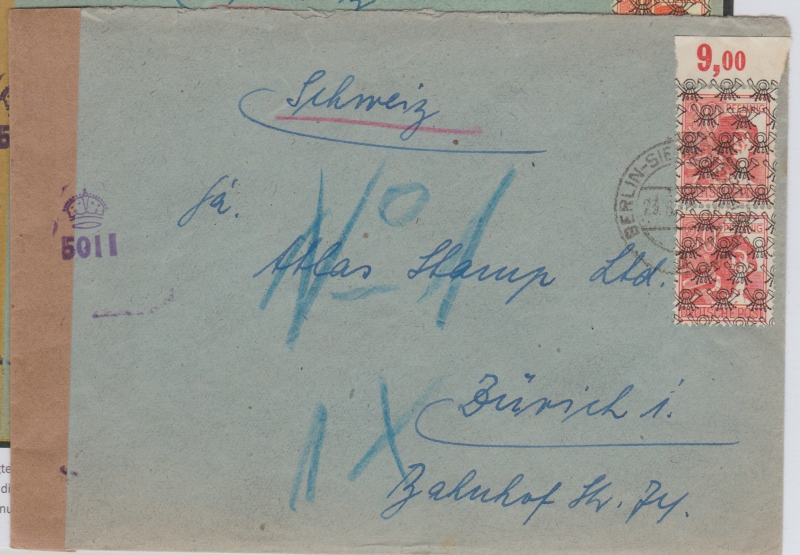 9,00
Schweiz
BERLIN-SIE
Fa.
No 1
5011
Atlas Stamp Ltd.
Zürich 1.
1X
Bahnhof Str. 74.